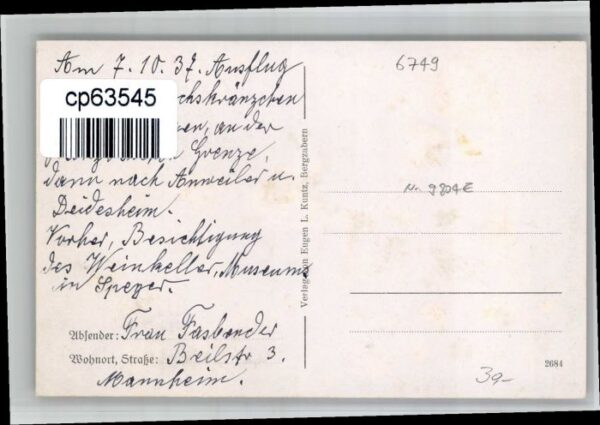 Am 7.10.37. Ausflug
cp63545
chskränzchen
en, an der
Grenze,
dann nach Annweiler u.
Deidesheim.
Vorher, Besichtigung
des Weinkeller, Museums
in Speyer.
Absender: Frau Fasbender
Wohnort, Straße: Beilstr 3.
Mannheim.
Verlag von Eugen L. Kuntz, Bergzabern
6749
2684
39-